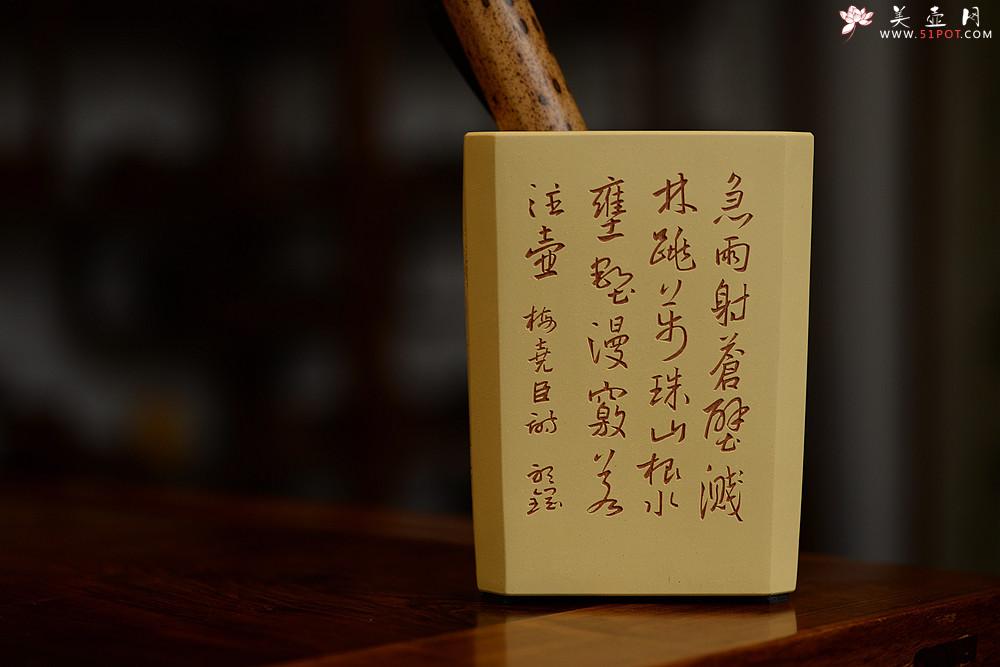 急雨射蒼壁濺
林跳萬珠山根水
壅壑漫竅若
注壺 梅堯臣詩
美壶网
WWW.51POT.COM